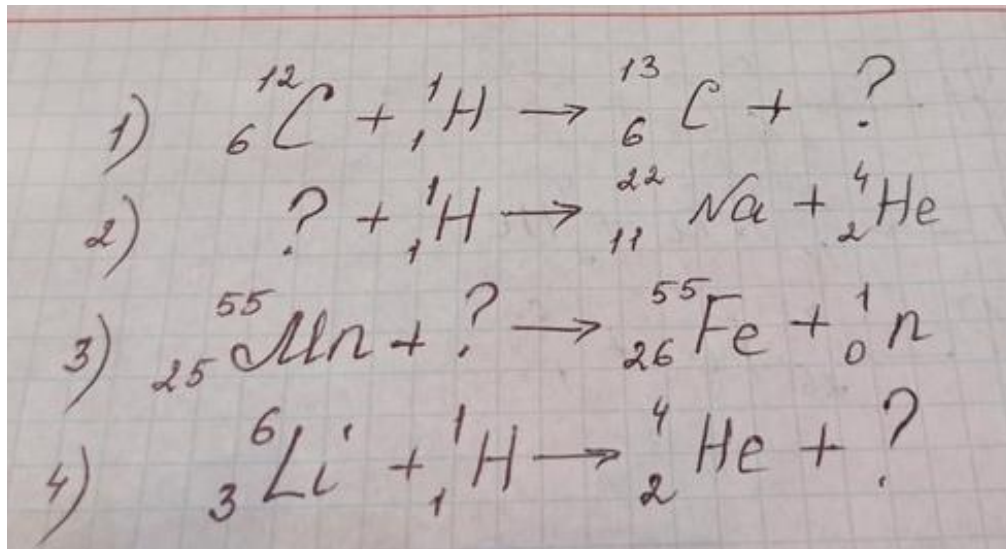 1) ¹²₆C + ¹₁H → ¹³₆C + ?
2) ? + ¹₁H → ²²₁₁Na + ⁴₂He
3) ⁵⁵₂₅Mn + ? → ⁵⁵₂₆Fe + ¹₀n
4) ⁶₃Li + ¹₁H → ⁴₂He + ?